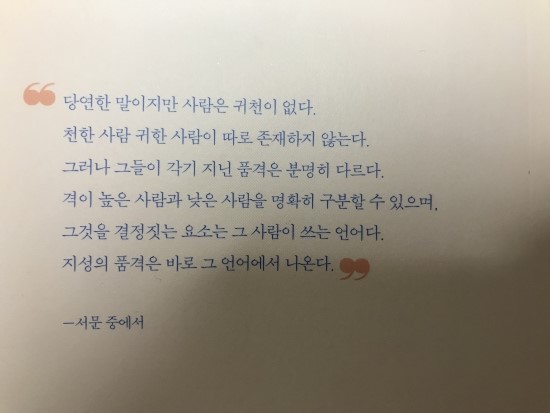 “ 당연한 말이지만 사람은 귀천이 없다.
천한 사람 귀한 사람이 따로 존재하지 않는다.
그러나 그들이 각기 지닌 품격은 분명히 다르다.
격이 높은 사람과 낮은 사람을 명확히 구분할 수 있으며,
그것을 결정짓는 요소는 그 사람이 쓰는 언어다.
지성의 품격은 바로 그 언어에서 나온다. ”
—서문 중에서